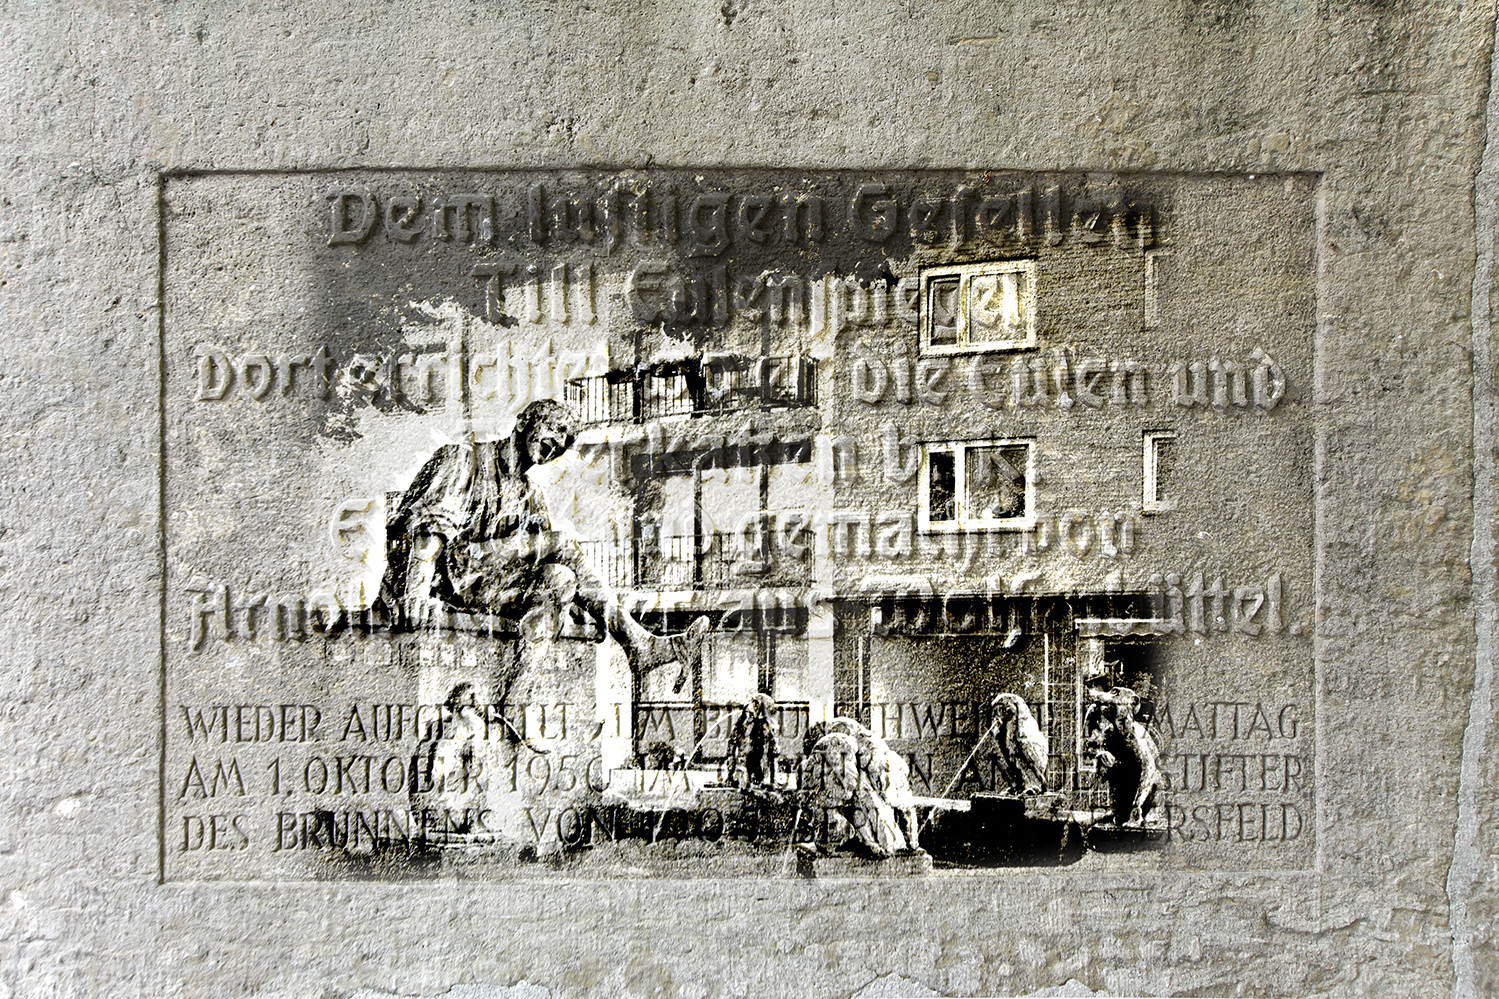 Dem lustigen Gesellen
Till Eulenspiegel
Dort errichtet wo er die Eulen und
Meerkatzen buk.
Erdacht und gemacht von
Arnold Kramer aus Wolfenbüttel.
WIEDER AUFGESTELLT ZUM BRAUNSCHWEIGER HEIMATTAG
AM 1. OKTOBER 1950 IM GEDENKEN AN DEN STIFTER
DES BRUNNENS VON 1905 BERNHARD MEYERSFELD